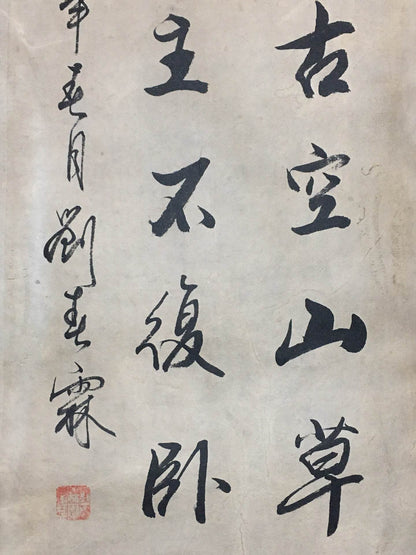 古空山草
主不復卧
年春月劉春霖